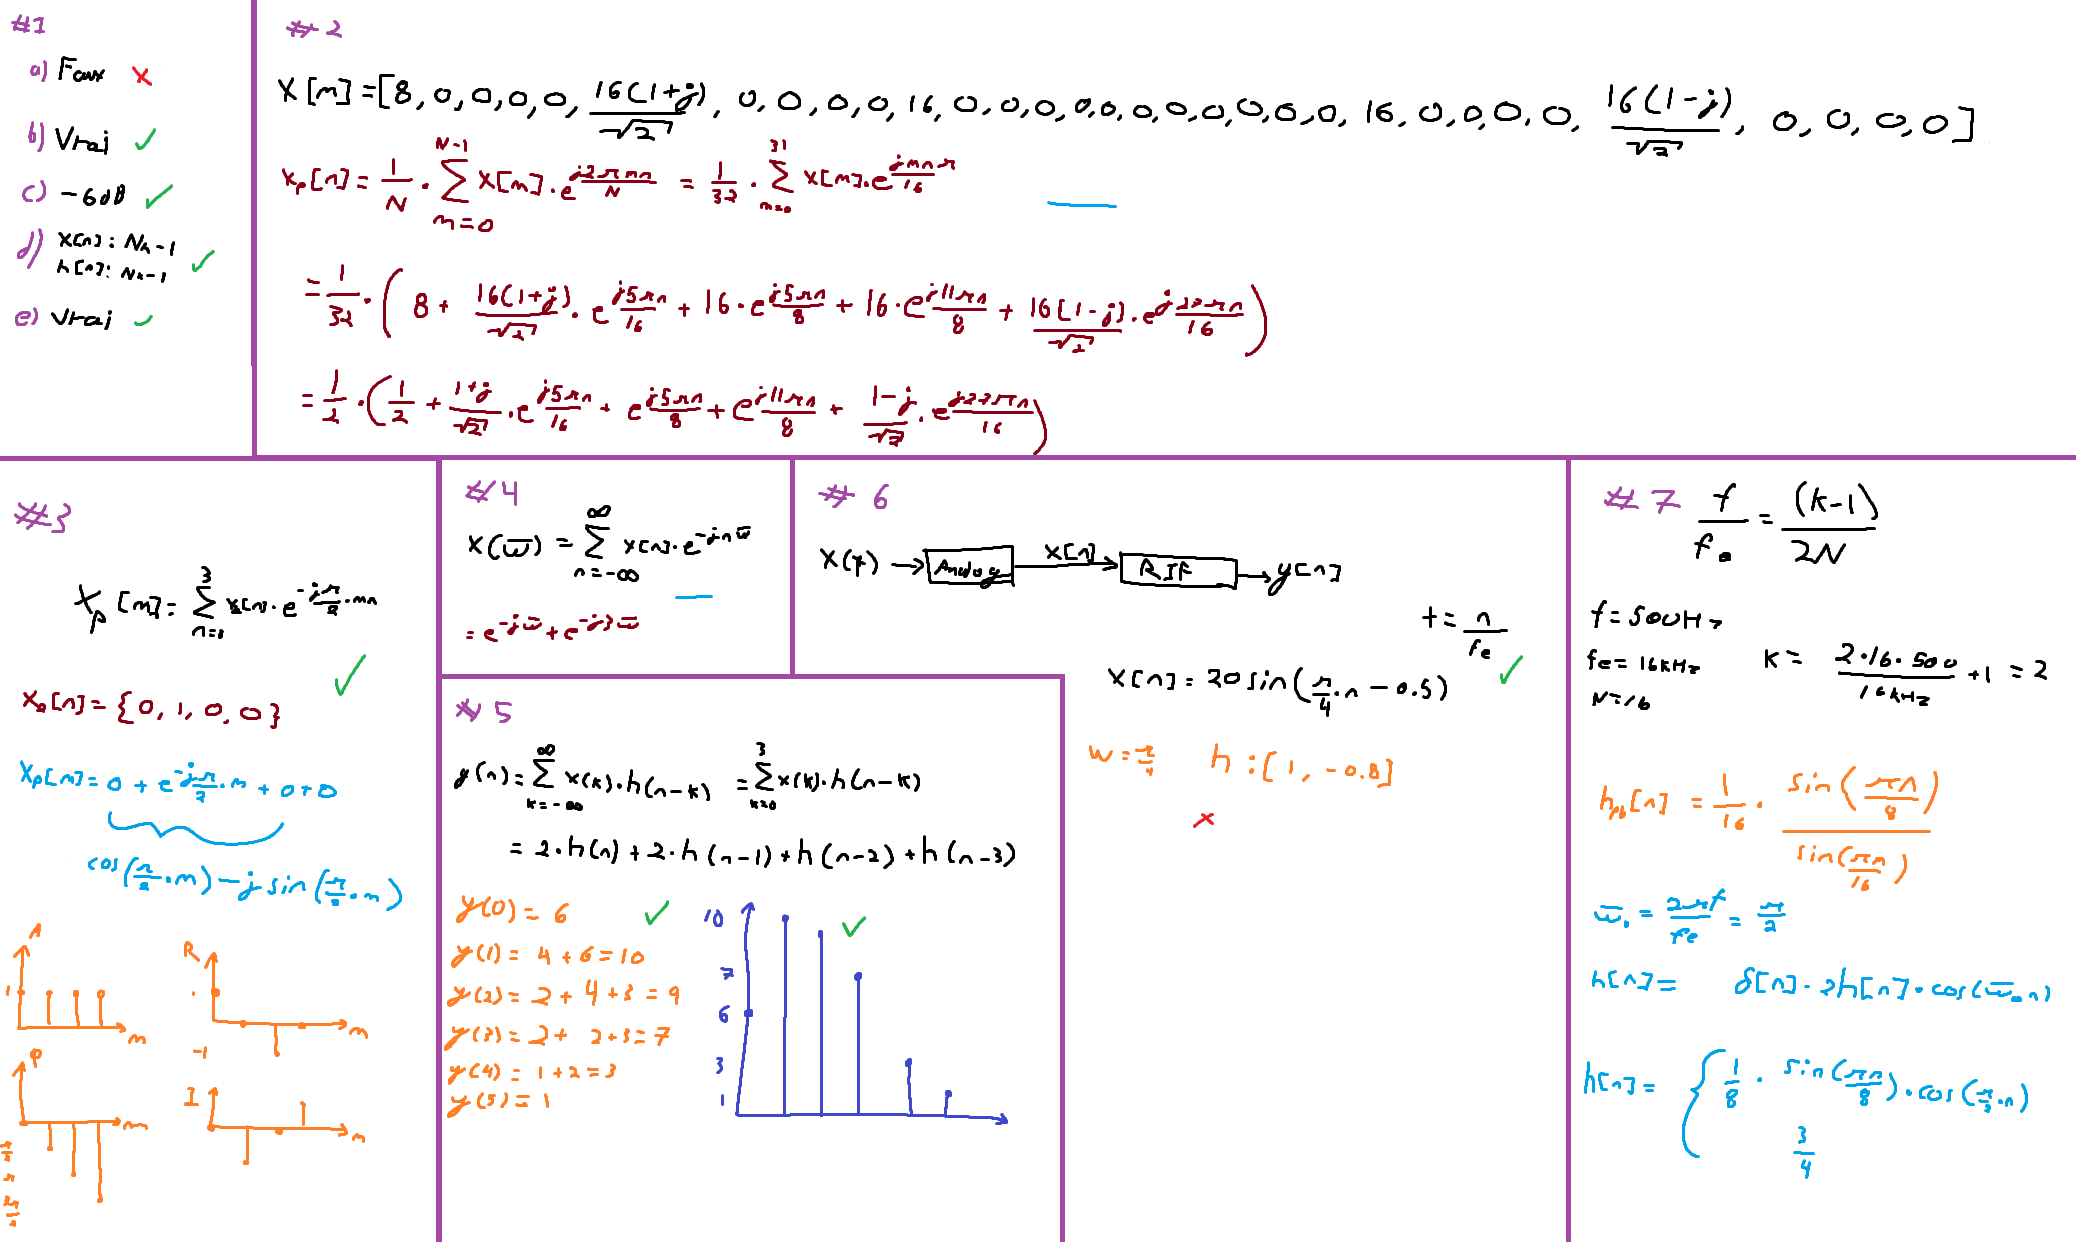 #1
a) Faux ✗
b) Vrai ✓
c) -6dB ✓
d) x[n] : Nh-1
h[n] : Nx-1 ✓
e) Vrai ✓
#2
X[m] = [8, 0, 0, 0, 0, 16(1+j)/√2, 0, 0, 0, 0, 16, 0, 0, 0, 0, 0, 0, 0, 0, 0, 0, 0, 16, 0, 0, 0, 0, 16(1-j)/√2, 0, 0, 0, 0]
xp[n] = 1/N · Σ_{m=0}^{N-1} X[m] · e^{j2πmn/N} = 1/32 · Σ_{m=0}^{31} X[m] · e^{jmnπ/16}
= 1/32 · (8 + 16(1+j)/√2 · e^{j5πn/16} + 16 · e^{j5πn/8} + 16 · e^{j11πn/8} + 16(1-j)/√2 · e^{j27πn/16})
= 1/2 · (1/2 + 1+j/√2 · e^{j5πn/16} + e^{j5πn/8} + e^{j11πn/8} + 1-j/√2 · e^{j27πn/16})
#3
Xp[m] = Σ_{n=0}^{3} x[n] · e^{-jπ/2 · mn}
✓
x2[n] = {0, 1, 0, 0}
Xp[m] = 0 + e^{-jπ/2 · m} + 0 + 0
cos(π/2 · m) - j sin(π/2 · m)
A
1
m
R
-1
m
φ
m
π/2
π
3π/2
I
m
#4
X(ω̅) = Σ_{n=-∞}^{∞} x[n] · e^{-jnω̅}
= e^{-jω̅} + e^{-j3ω̅}
#5
y(n) = Σ_{k=-∞}^{∞} x(k) · h(n-k) = Σ_{k=0}^{3} x(k) · h(n-k)
= 2 · h(n) + 2 · h(n-1) + h(n-2) + h(n-3)
y(0) = 6 ✓
y(1) = 4 + 6 = 10
y(2) = 2 + 4 + 3 = 9
y(3) = 2 + 2 + 3 = 7
y(4) = 1 + 2 = 3
y(5) = 1
10 ✓
7
6
3
1
#6
X(t) → Analog x[n] → RIF → y[n]
t = n/fe
x[n] = 20 sin(π/4 · n - 0.5) ✓
w = π/4 h : [1, -0.8]
✗
#7 f/fe = (k-1)/2N
f = 500Hz
fe = 16kHz
N = 16
k = 2·16·500/16kHz + 1 = 2
hpb[n] = 1/16 · sin(πn/8)/sin(πn/16)
ω̅0 = 2πf/fe = π/2
h[n] = δ[n] - 2h[n] · cos(ω̅0 n)
h[n] = { 1/8 · sin(πn/8) · cos(π/2 · n)
3/4